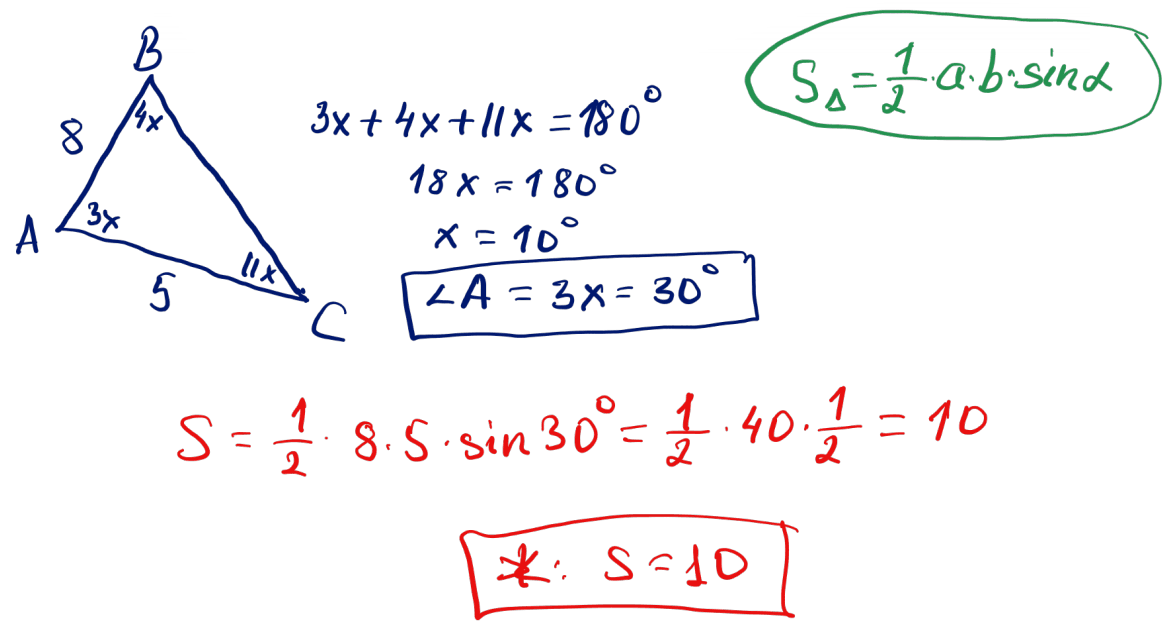 B
4x
8
A
3x
11x
5
C
3x + 4x + 11x = 180°
18x = 180°
x = 10°
∠A = 3x = 30°
S△ = 1/2 · a · b · sinα
S = 1/2 · 8 · 5 · sin 30° = 1/2 · 40 · 1/2 = 10
: S = 10